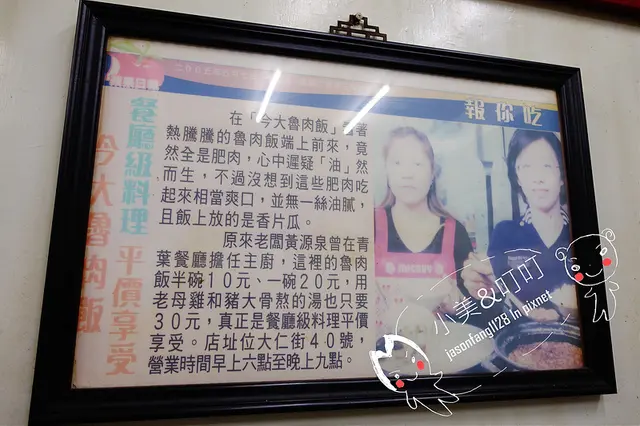 蘋果日報
報你吃
餐廳級料理 平價享受
今大魯肉飯
在「今大魯肉飯」看著
熱騰騰的魯肉飯端上前來，竟
然全是肥肉，心中遲疑「油」然
而生，不過沒想到這些肥肉吃
起來相當爽口，並無一絲油膩，
且飯上放的是香片瓜。
原來老闆黃源泉曾在青
葉餐廳擔任主廚，這裡的魯肉
飯半碗10元、一碗20元，用
老母雞和豬大骨熬的湯也只要
30元，真正是餐廳級料理平價
享受。店址位大仁街40號，
營業時間早上六點至晚上九點。
小美&叮叮
jasontang1128 in pixnet